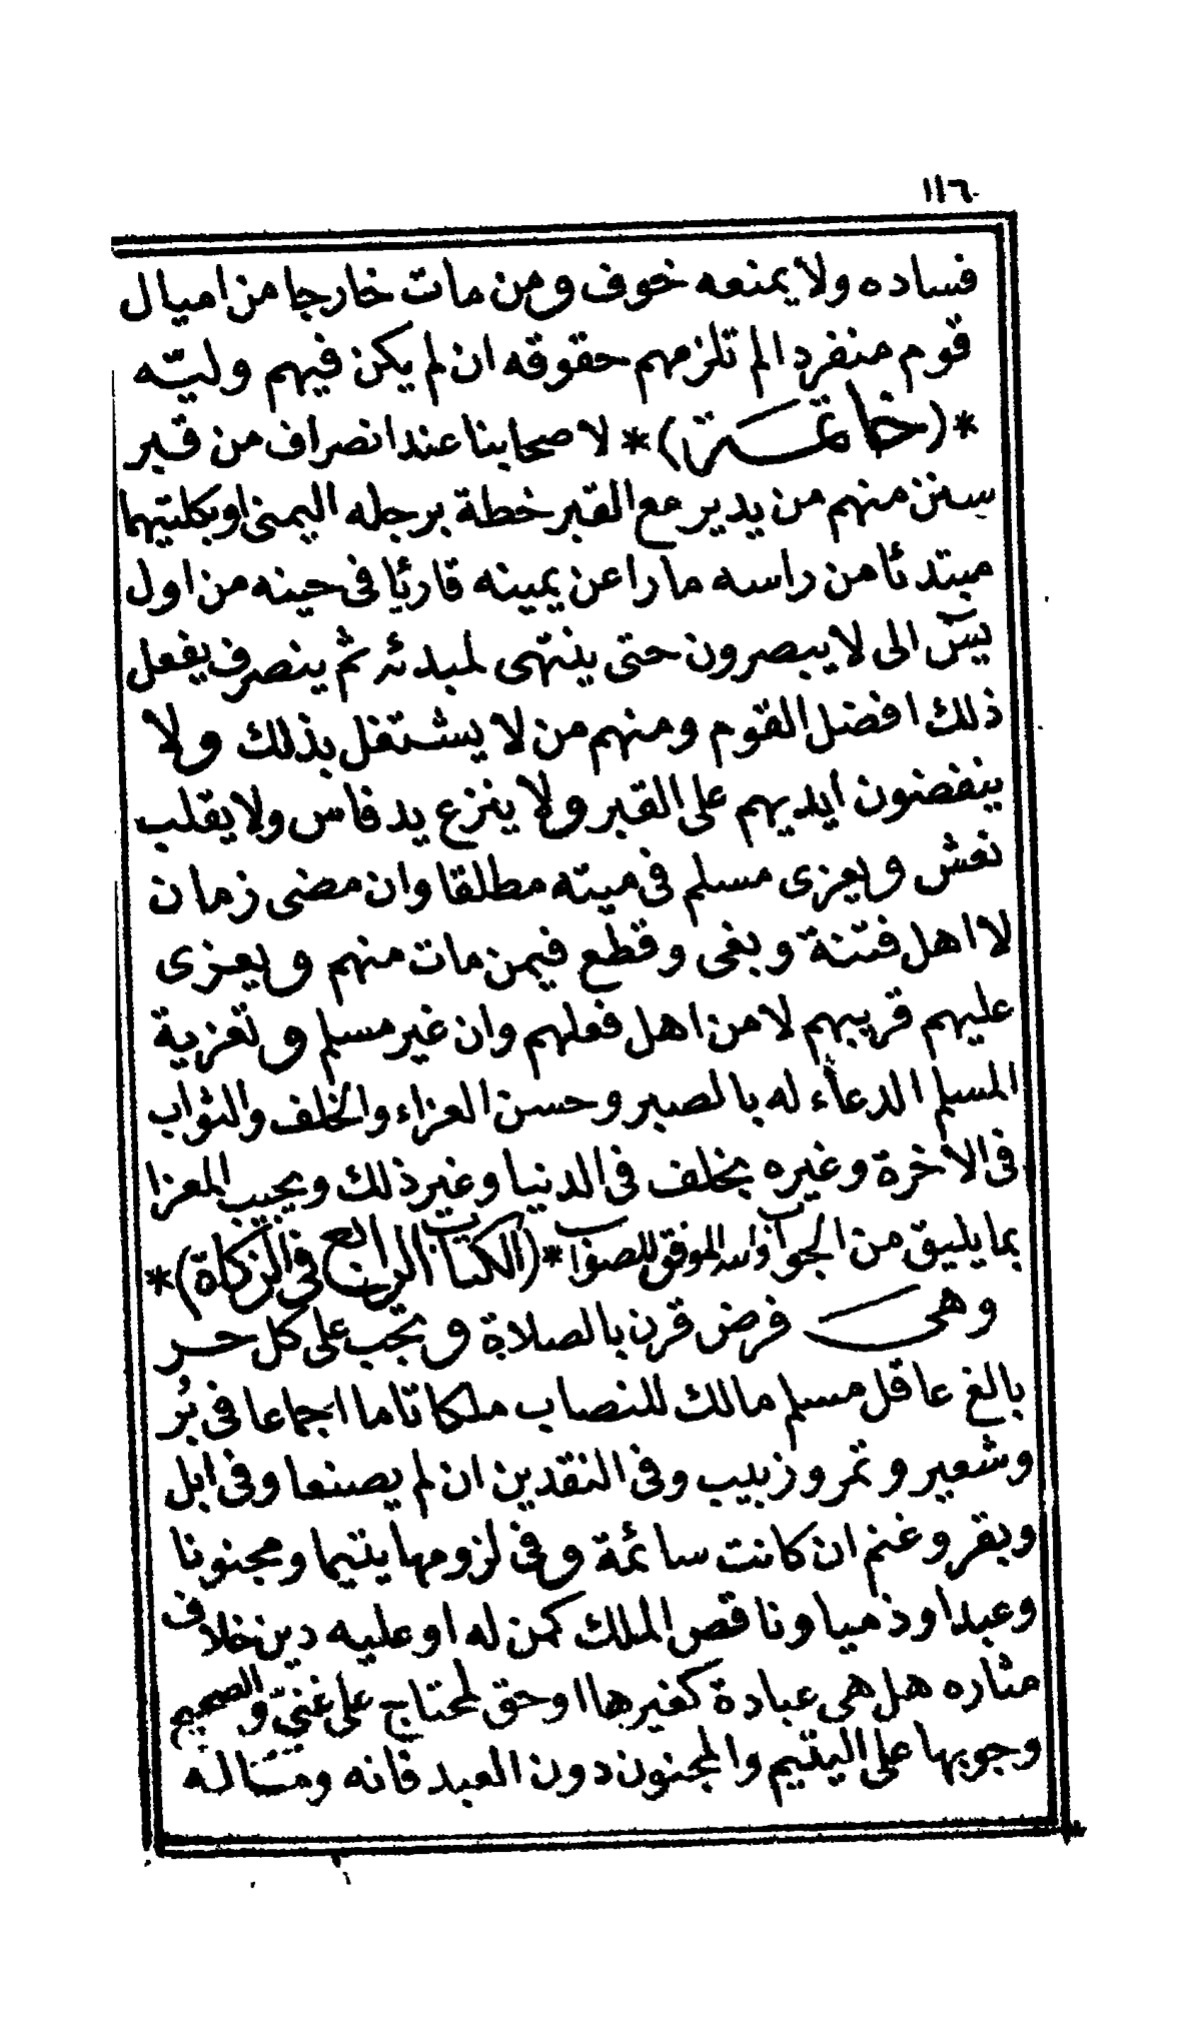 ١١٦
فساده ولا يمنعه خوف ومن مات خارجا من اميال
قوم منفردا لم تلزمهم حقوقه ان لم يكن فيهم وليّه
*(خاتمة)* لاصحابنا عند انصراف من قبر
سنن منهم من يدير مع القبر خطة برجله اليمنى او بكلتيهما
مبتدئا من راسه مارا عن يمينه قارئا فى حينه من اول
يسٓ الى لا يبصرون حتى ينتهى لمبدئه ثم ينصرف يفعل
ذلك افضل القوم ومنهم من لا يشتغل بذلك ولا
ينفضون ايديهم على القبر ولا ينزع يد فاس ولا يقلب
نعش ويعزى مسلم فى ميته مطلقا وان مضى زمان
لا اهل فتنة وبغى وقطع فيمن مات منهم ويعزى
عليهم قريبهم لا من اهل فعلهم وان غير مسلم وتعزية
المسلم الدعاء له بالصبر وحسن العزاء والخلف والثواب
فى الآخرة وغيره بخلف فى الدنيا وغير ذلك ويجيب المعزا
بما يليق من الجواب والله الموفق للصواب *(الكتاب الرابع فى الزكاة)*
وهى فرض قرن بالصلاة وتجب على كل حر
بالغ عاقل مسلم مالك للنصاب ملكا تاما اجماعا فى بُر
وشعير وتمر وزبيب وفى النقدين ان لم يصنعا وفى ابل
وبقر وغنم ان كانت سائمة وفى لزومها يتيما ومجنونا
وعبدا وذميا وناقص الملك كمن له او عليه دين خلاف
مثاره هل هى عبادة كغيرها او حق لمحتاج على غنيّ والصحيح
وجوبها على اليتيم والمجنون دون العبد فانه وماله